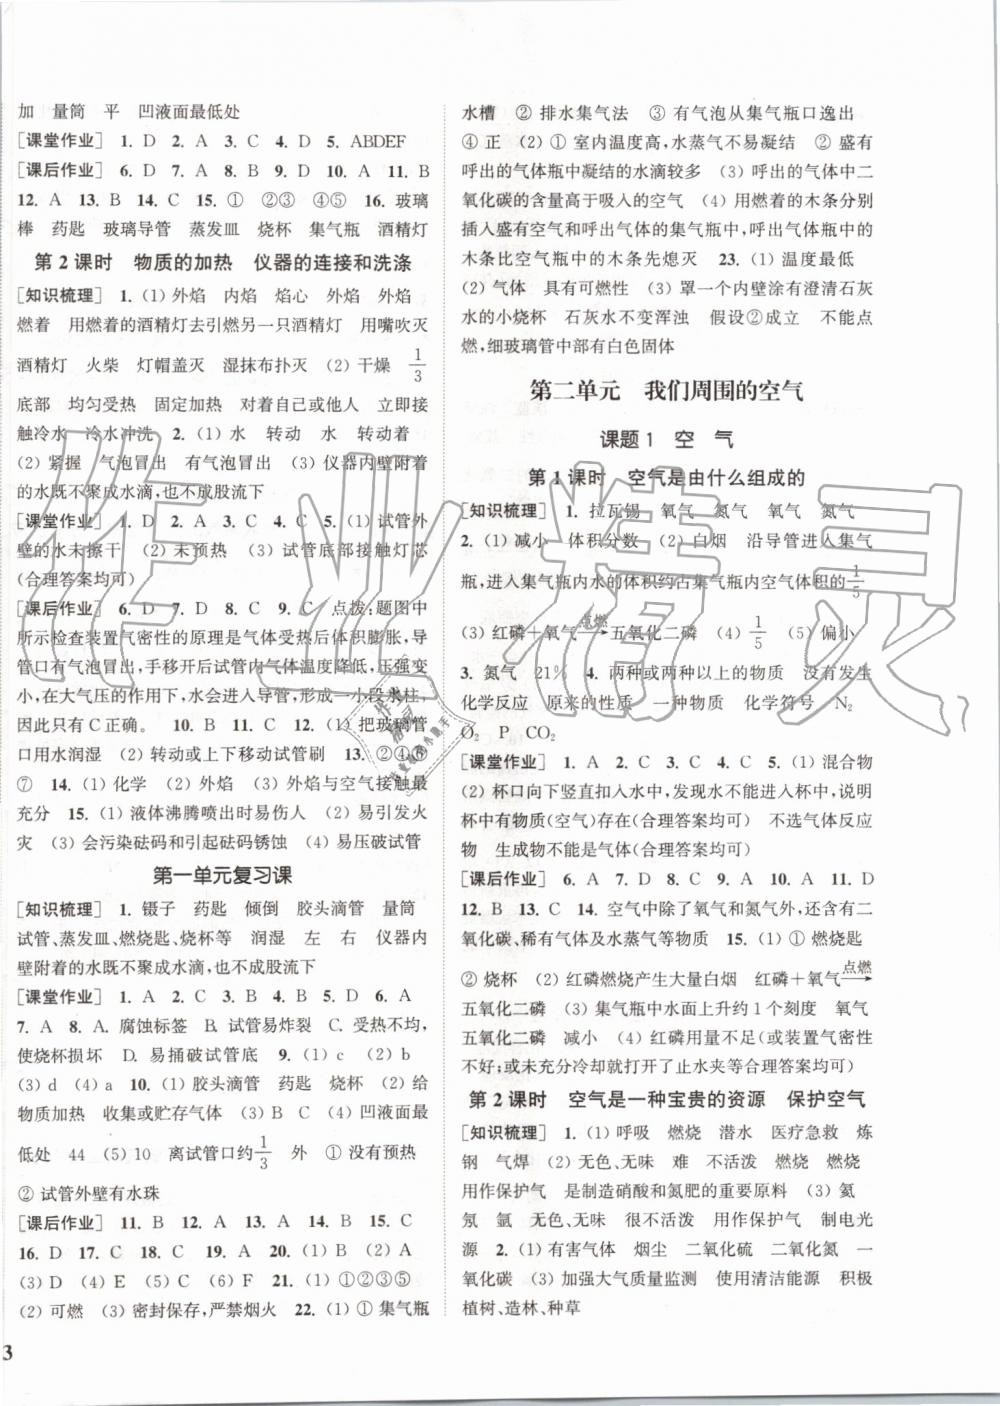 加　量筒　平　凹液面最低处
[课堂作业]　1. D　2. A　3. C　4. D　5. ABDEF
[课后作业]　6. D　7. A　8. B　9. D　10. A　11. B
12. A　13. B　14. C　15. ①　②③　④⑤　16. 玻璃
棒　药匙　玻璃导管　蒸发皿　烧杯　集气瓶　酒精灯
第 2 课时　物质的加热　仪器的连接和洗涤
[知识梳理]　1. (1) 外焰　内焰　焰心　外焰　外焰
燃着　用燃着的酒精灯去引燃另一只酒精灯　用嘴吹灭
酒精灯　火柴　灯帽盖灭　湿抹布扑灭　(2) 干燥　1/3
底部　均匀受热　固定加热　对着自己或他人　立即接
触冷水　冷水冲洗　2. (1) 水　转动　水　转动
(2) 紧握　气泡冒出　有气泡冒出　(3) 仪器内壁附着
的水既不聚成水滴,也不成股流下
[课堂作业]　1. D　2. A　3. C　4. C　5. (1) 试管外
壁的水未擦干　(2) 未预热　(3) 试管底部接触灯芯
(合理答案均可)
[课后作业]　6. D　7. D　8. A　9. C　点拨:题图中
所示检查装置气密性的原理是气体受热后体积膨胀,导
管口有气泡冒出,手移开后试管内气体温度降低,压强变
小,在大气压的作用下,水会进入导管,形成一小段水柱,
因此只有 C 正确。　10. B　11. C　12. (1) 把玻璃管
口用水润湿　(2) 转动或上下移动试管刷　13. ②④⑥
⑦　14. (1) 化学　(2) 外焰　(3) 外焰与空气接触最
充分　15. (1) 液体沸腾喷出时易伤人　(2) 易引发火
灾　(3) 会污染砝码和引起砝码锈蚀　(4) 易压破试管
第一单元复习课
[知识梳理]　1. 镊子　药匙　倾倒　胶头滴管　量筒
试管、蒸发皿、燃烧匙、烧杯等　润湿　左　右　仪器内
壁附着的水既不聚成水滴,也不成股流下
[课堂作业]　1. A　2. A　3. D　4. D　5. D　6. A
7. A　8. A. 腐蚀标签　B. 试管易炸裂　C. 受热不均,
使烧杯损坏　D. 易捅破试管底　9. (1) c　(2) b
(3) d　(4) a　10. (1) 胶头滴管　药匙　烧杯　(2) 给
物质加热　收集或贮存气体　(3) B　(4) 凹液面最
低处　44　(5) 10　离试管口约1/3　外　① 没有预热
② 试管外壁有水珠
[课后作业]　11. B　12. A　13. A　14. B　15. C
16. D　17. C　18. C　19. A　20. (1) B　(2) A
(3) D　(4) E　(5) C　(6) F　21. (1) ①②③⑤
(2) 可燃　(3) 密封保存,严禁烟火　22. (1) ① 集气瓶
3
水槽　② 排水集气法　③ 有气泡从集气瓶口逸出
④ 正　(2) ① 室内温度高,水蒸气不易凝结　② 盛有
呼出的气体瓶中凝结的水滴较多　(3) 呼出的气体中二
氧化碳的含量高于吸入的空气　(4) 用燃着的木条分别
插入盛有空气和呼出气体的集气瓶中,呼出气体瓶中的
木条比空气瓶中的木条先熄灭　23. (1) 温度最低
(2) 气体　具有可燃性　(3) 罩一个内壁涂有澄清石灰
水的小烧杯　石灰水不变浑浊　假设②成立　不能点
燃,细玻璃管中部有白色固体
第二单元　我们周围的空气
课题 1　空　气
第 1 课时　空气是由什么组成的
[知识梳理]　1. 拉瓦锡　氧气　氮气　氧气　氮气
2. (1) 减小　体积分数　(2) 白烟　沿导管进入集气
瓶,进入集气瓶内水的体积约占集气瓶内空气体积的1/5
(3) 红磷＋氧气 点燃→ 五氧化二磷　(4) 1/5　(5) 偏小
3. 氮气　21%　4. 两种或两种以上的物质　没有发生
化学反应　原来的性质　一种物质　化学符号　N₂
O₂　P　CO₂
[课堂作业]　1. A　2. C　3. A　4. C　5. (1) 混合物
(2) 杯口向下竖直扣入水中,发现水不能进入杯中,说明
杯中有物质(空气)存在(合理答案均可)　不选气体反应
物　生成物不能是气体(合理答案均可)
[课后作业]　6. A　7. D　8. D　9. A　10. A　11. D
12. B　13. C　14. 空气中除了氧气和氮气外,还含有二
氧化碳、稀有气体及水蒸气等物质　15. (1) ① 燃烧匙
② 烧杯　(2) 红磷燃烧产生大量白烟　红磷＋氧气 点燃→
五氧化二磷　(3) 集气瓶中水面上升约 1 个刻度　氧气
五氧化二磷　(4) 红磷用量不足(或装置气密性
不好;或未充分冷却就打开了止水夹等合理答案均可)
第 2 课时　空气是一种宝贵的资源　保护空气
[知识梳理]　1. (1) 呼吸　燃烧　潜水　医疗急救　炼
钢　气焊　(2) 无色、无味　难　不活泼　燃烧　燃烧
用作保护气　是制造硝酸和氮肥的重要原料　(3) 氦
氖　氩　无色、无味　很不活泼　用作保护气　制电光
源　2. (1) 有害气体　烟尘　二氧化硫　二氧化氮　一
氧化碳　(3) 加强大气质量监测　使用清洁能源　积极
植树、造林、种草
作业精灵